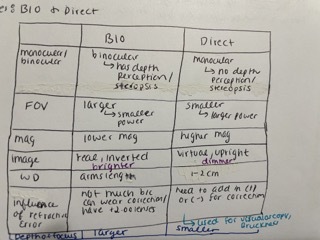 BIO & Direct
BIO Direct
monocular/ binocular monocular
binocular ↳ has depth ↳ no depth
perception/ perception/
stereopsis stereopsis
FOV larger smaller
↳ smaller ↳ larger power
power
mag lower mag higher mag
image real, inverted virtual, upright
brighter dimmer
WD arms length 1-2 cm
influence not much b/c need to add in (+)
of refractive can wear correction/ or (-) for correction
error have +2 oculenses
↳ used for visuoscopy,
Depth of focus larger smaller